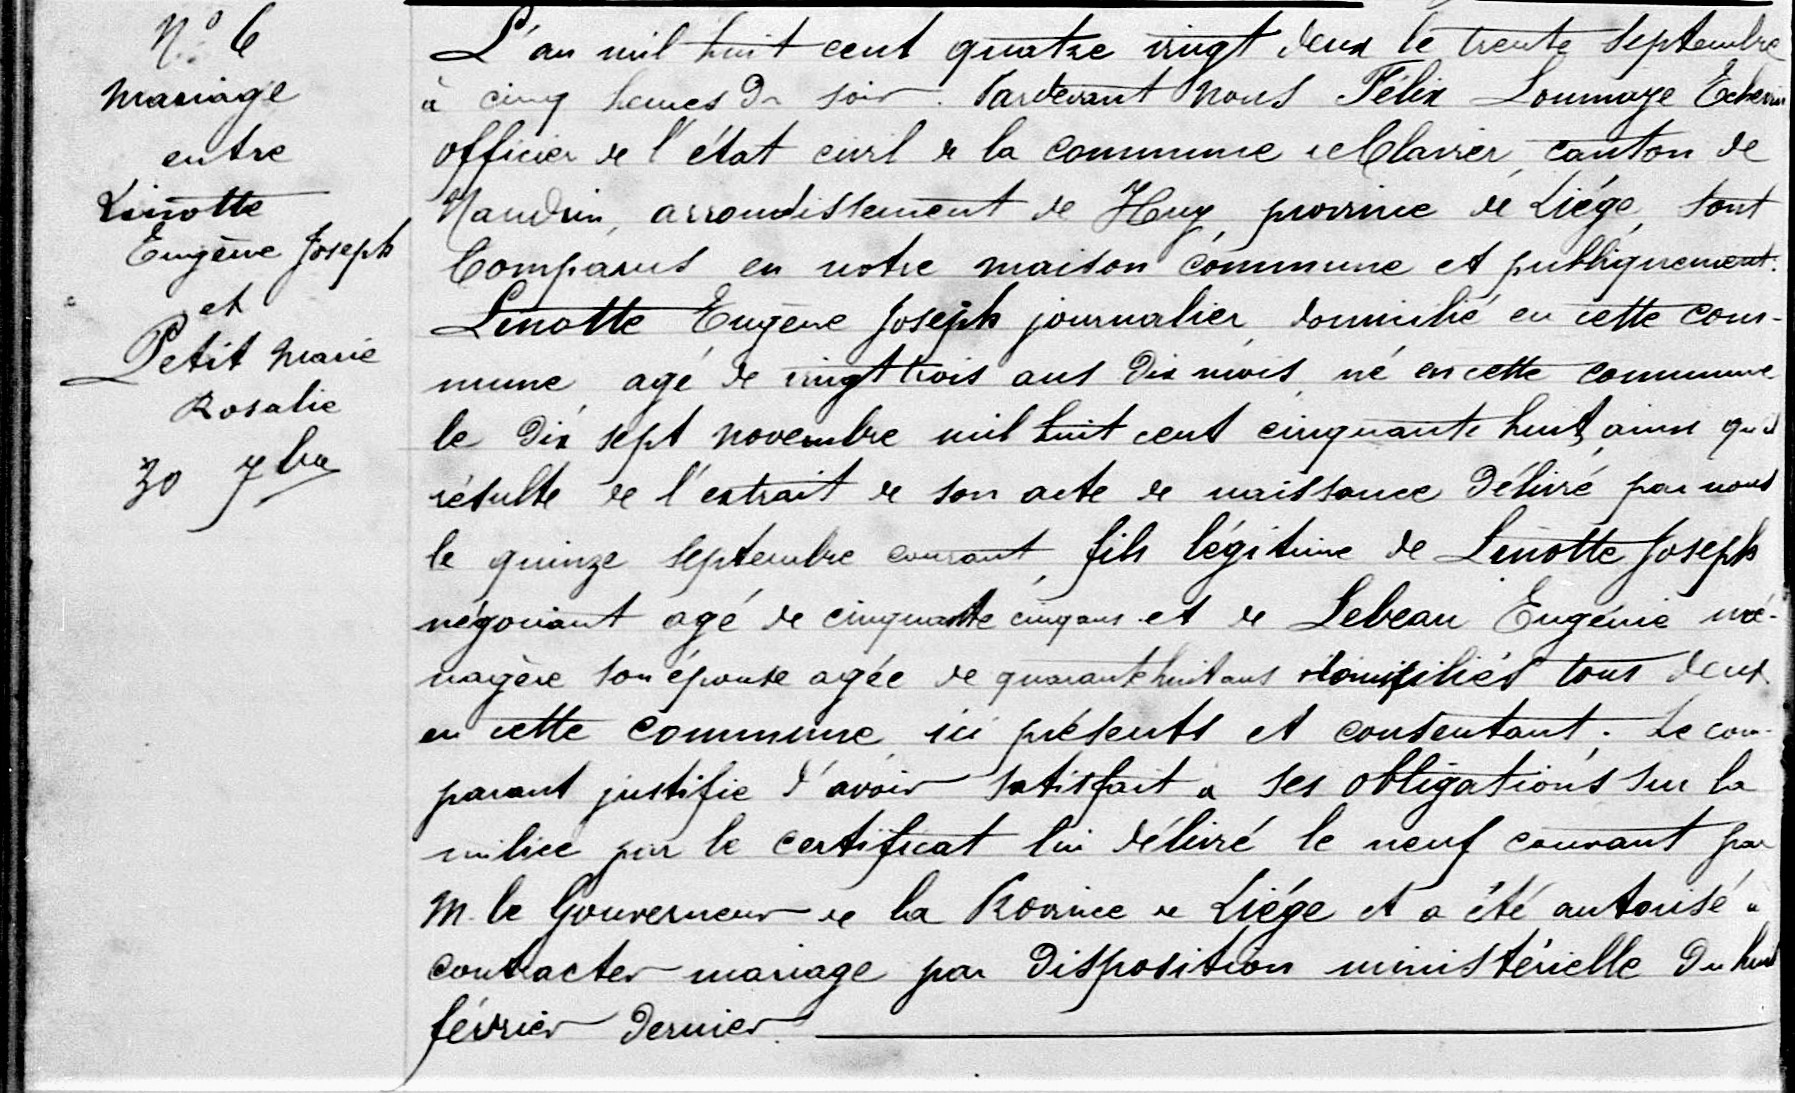 N° 6
Mariage
entre
Linotte
Eugène Joseph
et
Petit Marie
Rosalie
30 7bre
L'an mil huit cent quatre vingt deux le trente septembre
à cinq heures du soir. Pardevant nous Félix Loumaye Echevin
officier de l'état civil de la commune de Clavier canton de
Nandrin, arrondissement de Huy, province de Liége, sont
Comparus en notre maison commune et publiquement.
Linotte Eugène Joseph journalier domicilié en cette com-
mune agé de vingt trois ans dix mois, né en cette commune
le dix sept novembre mil huit cent cinquante huit, ainsi qu'il
résulte de l'extrait de son acte de naissance délivré par nous
le quinze septembre courant, fils légitime de Linotte Joseph
négociant agé de cinquante cinq ans et de Lebeau Eugénie mé-
nagère son épouse agée de quarante huit ans domiciliés tous deux
en cette commune ici présents et consentant. Le com-
parant justifie d'avoir satisfait à ses obligations sur la
milice par le certificat lui délivré le neuf courant par
M. le Gouverneur de la Province de Liége et a été autorisé à
contracter mariage par disposition ministérielle du huit
février dernier.